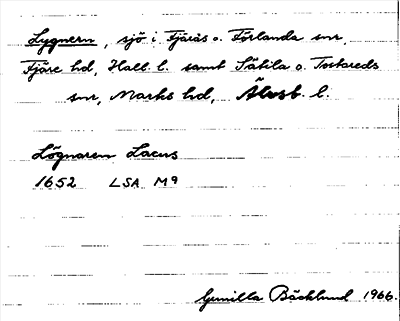 Lygnern, sjö i Fjärås o. Förlanda snr,
Fjäre hd, Hall. l. samt Sätila o. Tostareds
snr, Marks hd, Älvsb. l.
Lögnaren Lacus
1652 LSA M9
Gunilla Bäcklund 1966.